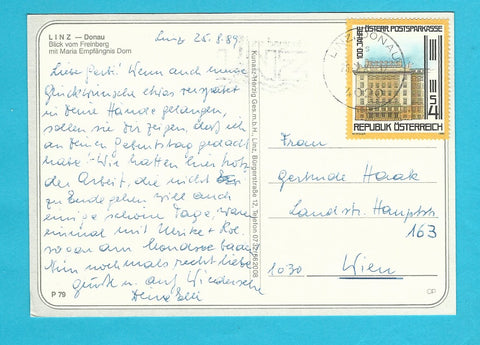 LINZ — Donau
Blick vom Freinberg
mit Maria Empfängnis Dom
Linz 25.8.89
Liebe Gerti! Wenn auch meine
Glückwünsche etwas verspätet
in deine Hände gelangen,
sollen sie dir zeigen, daß ich
an deinen Geburtstag gedacht
habe! Wir hatten hier trotz
der Arbeit, die nicht
zu Ende gehen will auch
einige schöne Tage, waren
einmal mit Ulrike +
sogar am Mondsee baden.
Nun nochmals recht liebe
Grüße u. auf Wiedersehen
Deine Elli
P 79
Kunasz-Merzig Ges.m.b.H., Linz, Bürgerstraße 12, Telefon
LINZ/DONAU
4020
100 JAHRE ÖSTERR. POSTSPARKASSE
S 4
REPUBLIK ÖSTERREICH
Frau
Gertrude Haak
Landstr. Hauptstr.
163
1030 Wien